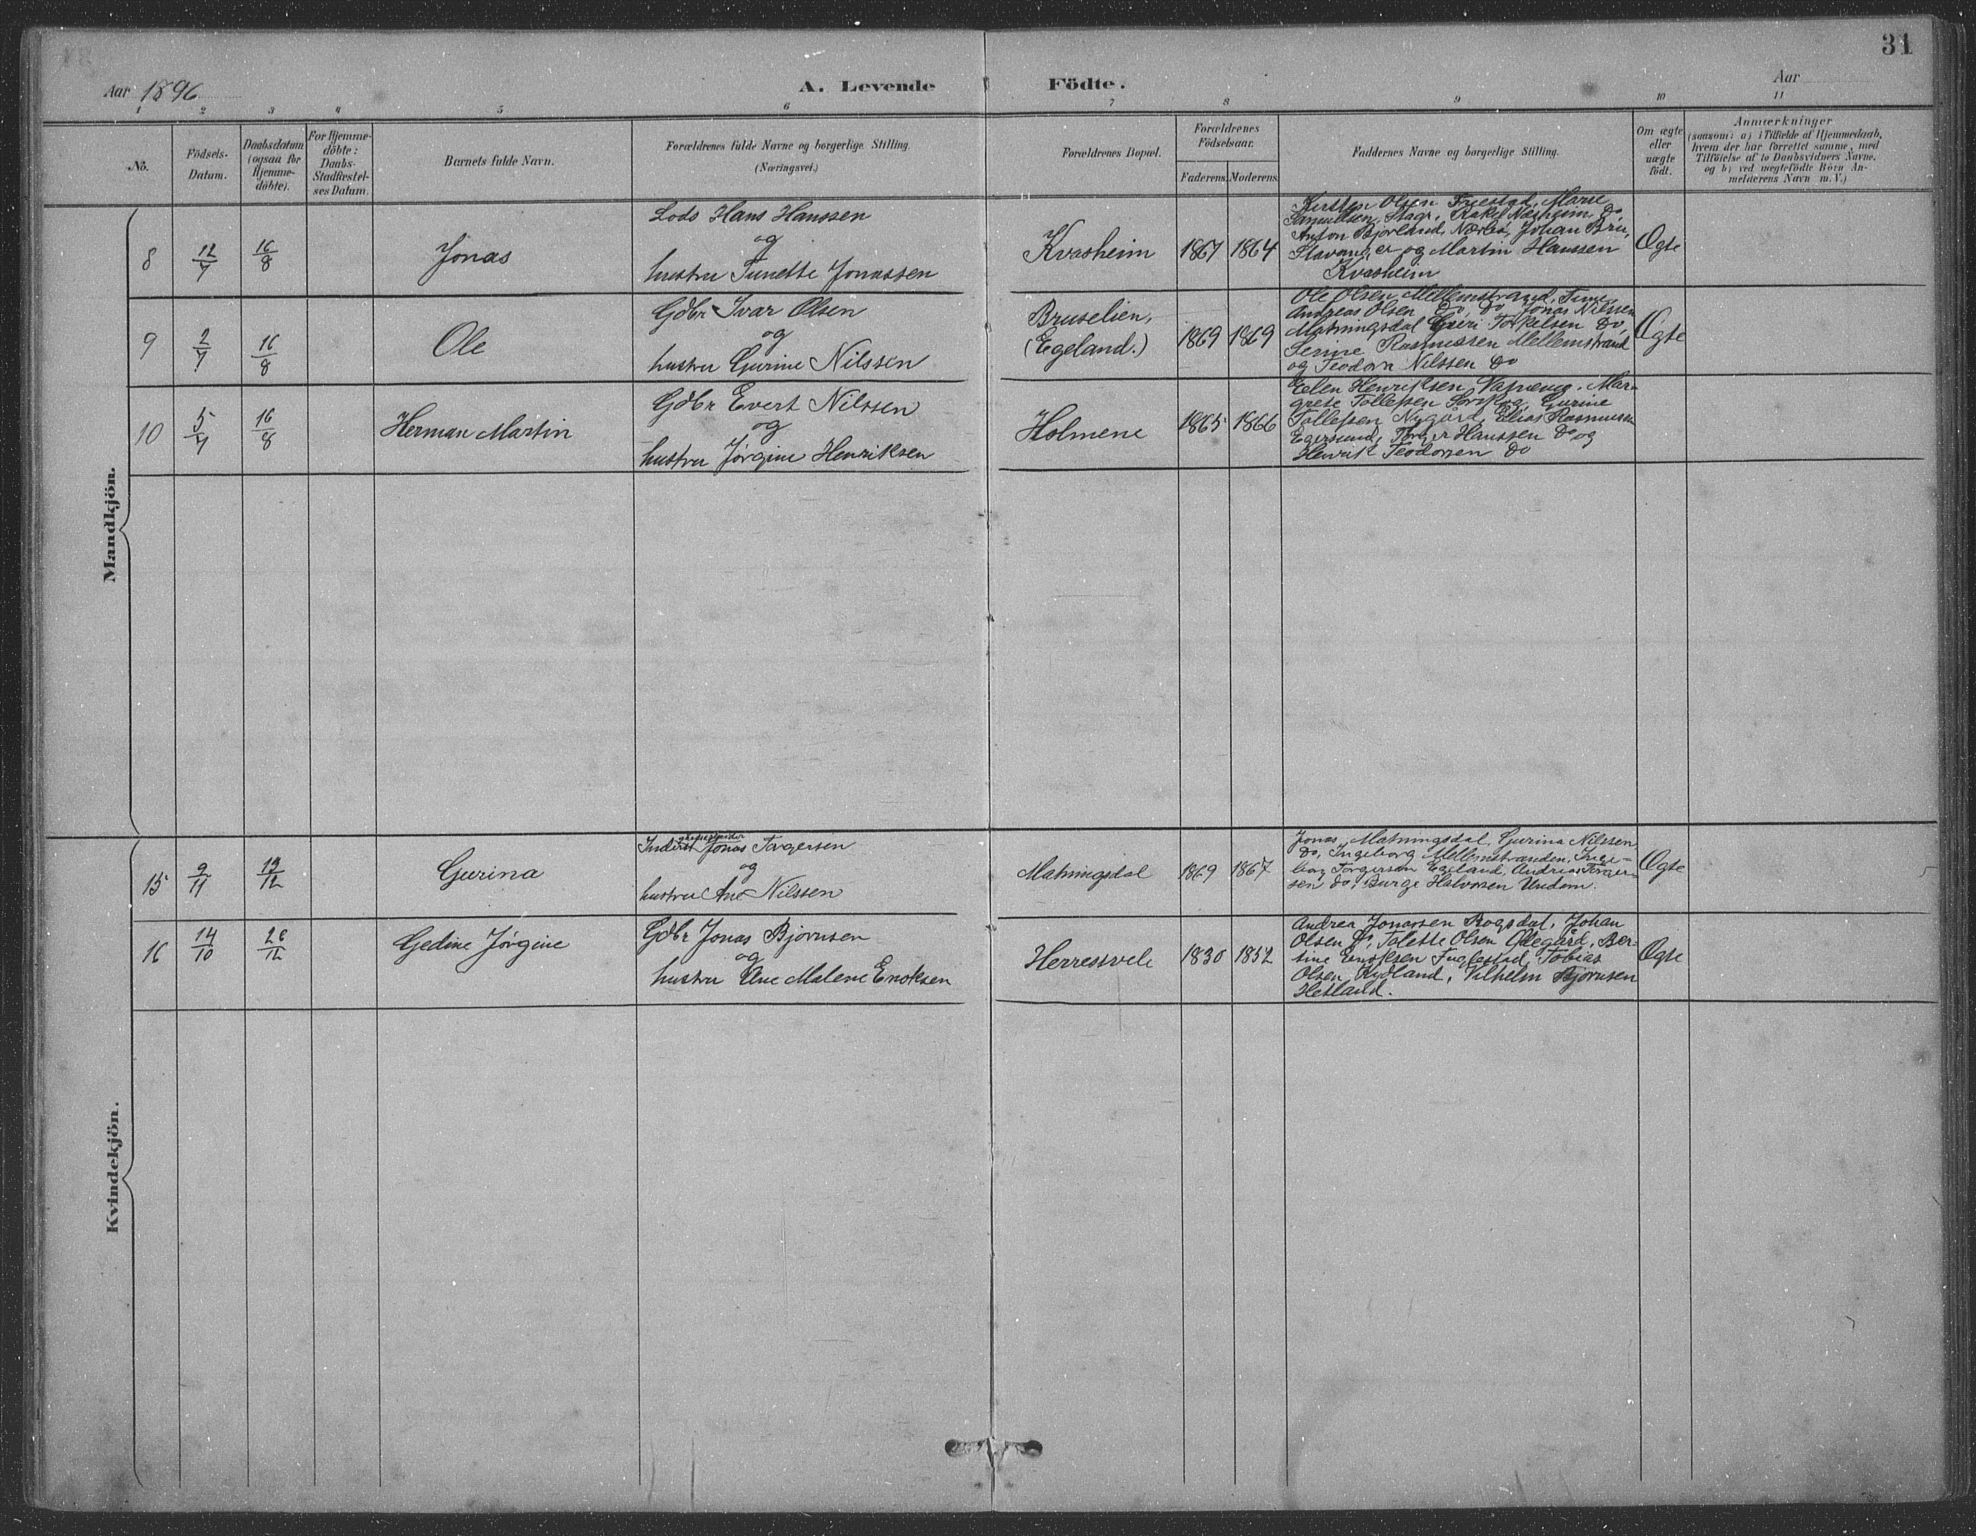 31
Aar 1896
A. Levende Födte.
Aar
1 2 3 4 5 6 7 8 9 10 11
No.
Födsels-
Datum.
Daabsdatum
(ogsaa for
Hjemme-
döbte).
For Hjemme-
döbte:
Daabs-
Stadfæstel-
ses Datum.
Barnets fulde Navn.
Forældrenes fulde Navne og borgerlige Stilling.
(Næringsvei.)
Forældrenes Bopæl.
Forældrenes
Födselsaar.
Faderens.
Moderens.
Faddernes Navne og borgerlige Stilling.
Om ægte
eller
uægte
födt.
Anmærkninger
(saasom: a) i Tilfælde af Hjemmedaab,
hvem der har forrettet samme, med
Tilföielse af to Daabsvidners Navne,
og b) ved uægtefödte Börn An-
melderens Navn m. V.)
Mandkjön.
8
12/7
16/8
Jonas
Lods Hans Hanssen
og
hustru Tunette Jonassen
Kvasheim
1867
1864
Kirsten Olsen Friestad, Marie
Samuelsen, Stagr. Rakel Næsheim Do,
Anton Bjorland, Nærbø, Johan Bru,
Stavanger og Martin Hanssen
Kvasheim
Ægte
9
2/7
16/8
Ole
Gdbr Ivar Olsen
og
hustru Gurine Nilssen
Bruselien,
(Egeland.)
1869
1869
Ole Olsen Mellemstrand, Time,
Andreas Olsen Do, Do Jonas Nilssen
Matningsdal Torkelsen Do,
Serine Rasmussen Mellemstrand
og Teodora Nilssen Do
Ægte
10
5/7
16/8
Herman Martin
Gdbr Evert Nilssen
og
hustru Jørgine Henriksen
Holmene
1865
1866
Elen Henriksen Mar-
grete Tollefsen Gurine
Tollefsen Nygård, Elias Rasmussen
Egersund, Torger Hanssen Do og
Henrik Teodorsen Do
Ægte
Kvindekjön.
15
9/11
13/12
Gurina
Inderst Jonas Torgersen
og
hustru Ane Nilssen
Matningsdal
1869
1867
Jonas Matningsdal, Gurina Nilssen
Do, Ingeborg Mellemstranden, Inge-
borg Torgersen Egeland, Andreas Torger-
sen Do, Børge Halvorsen Undem.
Ægte
16
14/10
26/12
Gedine Jørgine
Gdbr Jonas Bjørnsen
og
hustru Ane Malene Enoksen
Herressvele
1830
1852
Andrea Jonassen Rogsdal, Johan
Olsen Do, Talette Olsen Ødegård, Ber-
tine Enoksen Fuglestad, Tobias
Olsen Rydland, Vilhelm Bjørnsen
Hetland.
Ægte